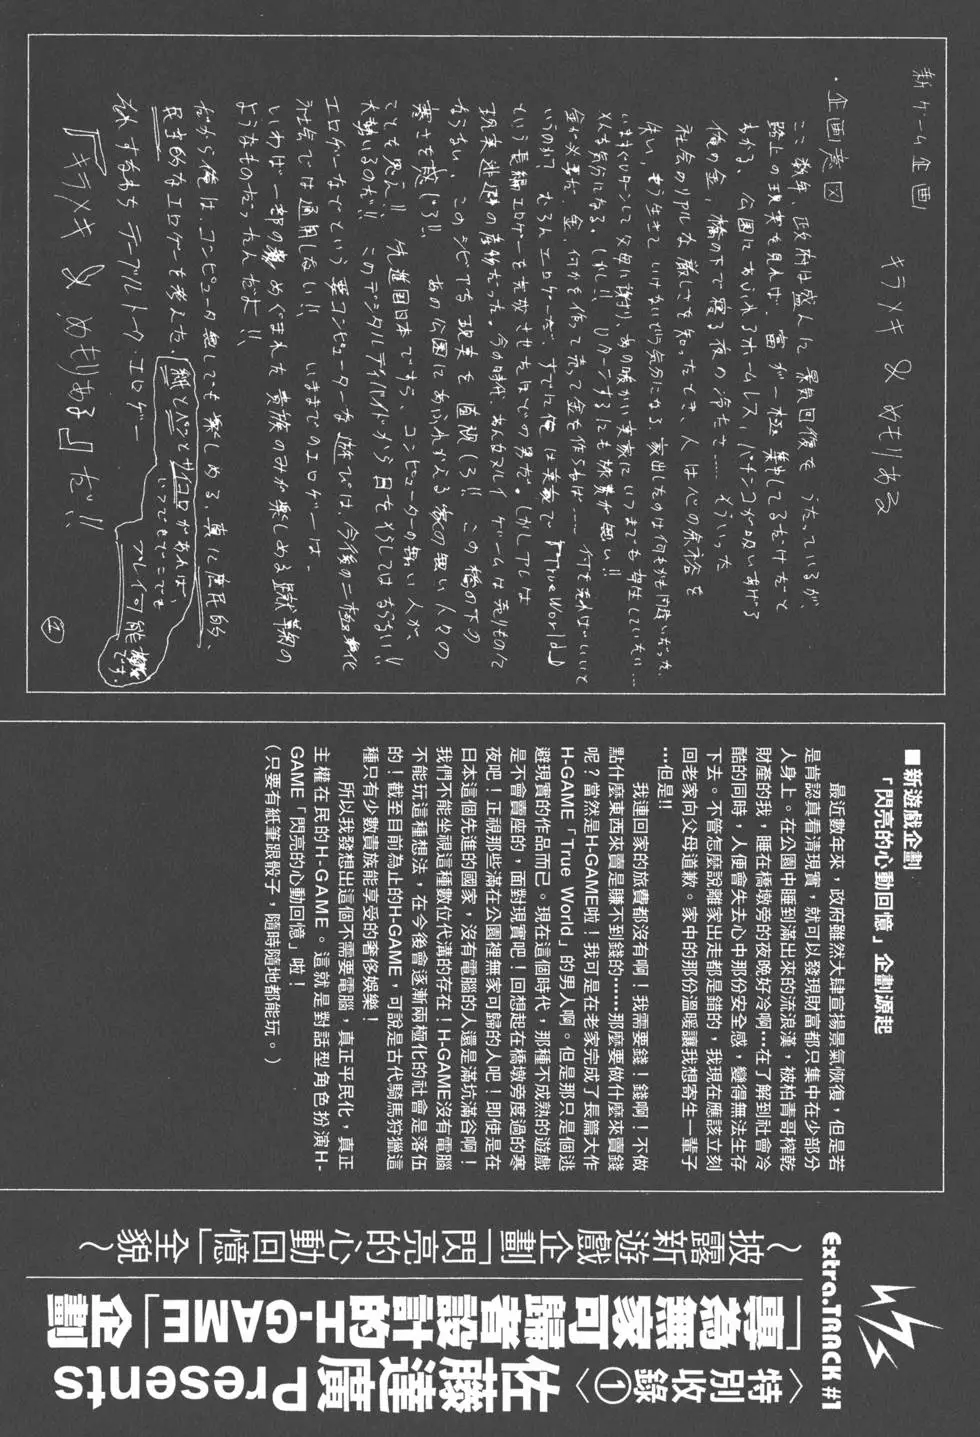 Extra.TRACK #1
〈特別收錄①〉
佐藤達廣Presents
「專為無家可歸者設計的H-GAME」企劃
～披露新遊戲企劃「閃亮的心動回憶」全貌～
■新遊戲企劃
「閃亮的心動回憶」企劃源起
最近數年來，政府雖然大肆宣揚景氣恢復，但是若
是肯認真看清現實，就可以發現財富都只集中在少部分
人身上。在公園中睡到滿出來的流浪漢，被柏青哥榨乾
財產的我，睡在橋墩旁的夜晚好冷啊…在了解到社會冷
酷的同時，人便會失去心中那份安全感，變得無法生存
下去。不管怎麼說離家出走都是錯的，我現在應該立刻
回老家向父母道歉。家中的那份溫暖讓我想寄生一輩子
…但是!!
我連回家的旅費都沒有啊！我需要錢！錢啊！不做
點什麼東西來賣是賺不到錢的……那麼要做什麼來賣錢
呢？當然是H-GAME啦！我可是在老家完成了長篇大作
H-GAME「True World」的男人啊。但是那只是個逃
避現實的作品而已。現在這個時代，那種不成熟的遊戲
是不會賣座的，面對現實吧！回想起在橋墩旁度過的寒
夜吧！正視那些滿在公園裡無家可歸的人吧！即使是在
日本這個先進的國家，沒有電腦的人還是滿坑滿谷啊！
我們不能坐視這種數位代溝的存在！H-GAME沒有電腦
不能玩這種想法，在今後會逐漸兩極化的社會是落伍
的！截至目前為止的H-GAME，可說是古代騎馬狩獵這
種只有少數貴族能享受的奢侈娛樂！
所以我發想出這個不需要電腦，真正平民化，真正
主權在民的H-GAME。這就是對話型角色扮演H-
GAME「閃亮的心動回憶」啦！
（只要有紙筆跟骰子，隨時隨地都能玩。）
新ゲーム企画
キラメキ & めもりある
・企画意図
ここ数年、政府は盛んに景気回復を うたっているが、
路上の現実を見れば、富が一極集中してるだけだと
わかる。公園にあふれるホームレス、パチンコが吸いあげる
俺の金、橋の下で寝る夜の冷たさ…… そういった
社会のリアルな厳しさを知ったとき、人は心の余裕を
失い、もう生きていけないという気分になる。家出したのは何もかも間違いだった。
いますぐUターンして父母に謝り、あの暖かい実家にいつまでも寄生していたい…
そんな気分になる。しかし!! Uターンするにも旅費が無い!!
金が必要だ、金、何かを作って売って金を作らねば…… 何を売ればいいと
いうのか? むろんエロゲーだ、すでに俺は実家で『True World』
という長編エロゲーを完成させたほどの男だ。しかしアレは
現実逃避の産物だった。今の時代、あんなヌルイ ゲームは売りものに
ならない、このシビアな現実を直視しろ!! この橋の下の
寒さを感じろ!!、 あの公園にあふれかえる家の無い人々の
ことを思え!! 先進国日本ですら、コンピューターの無い人が、
大勢いるのだ!! このデジタルデイバイドから目をそらしてはならない!!
エロゲーなどという要コンピューターな遊びは、今後の二極化
社会では通用しない!! いままでのエロゲーは、
いわば一部のめぐまれた貴族のみが楽しめる
ようなものだったんだよ!!
だから俺はコンピュータ無しでも楽しめる、真に庶民的、
民主的なエロゲーを考えた、
それすなわち テーブルトーク・エロゲー
『キラメキ & めもりある』だ!!
紙とペンとサイコロがあれば、
いつでもどこでも
プレイ可能
です。
①